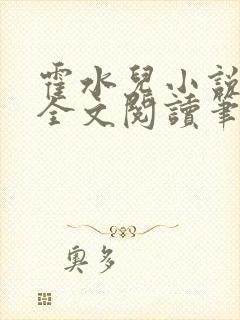 霍水兒小說
全文閱讀筆
奧多